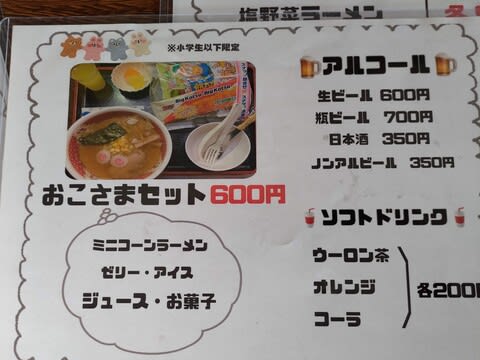 塩野菜ラーメン
※小学生以下限定
おこさまセット600円
ミニコーンラーメン
ゼリー・アイス
ジュース・お菓子
アルコール
生ビール 600円
瓶ビール 700円
日本酒 350円
ノンアルビール 350円
ソフトドリンク
ウーロン茶
オレンジ
コーラ
各200